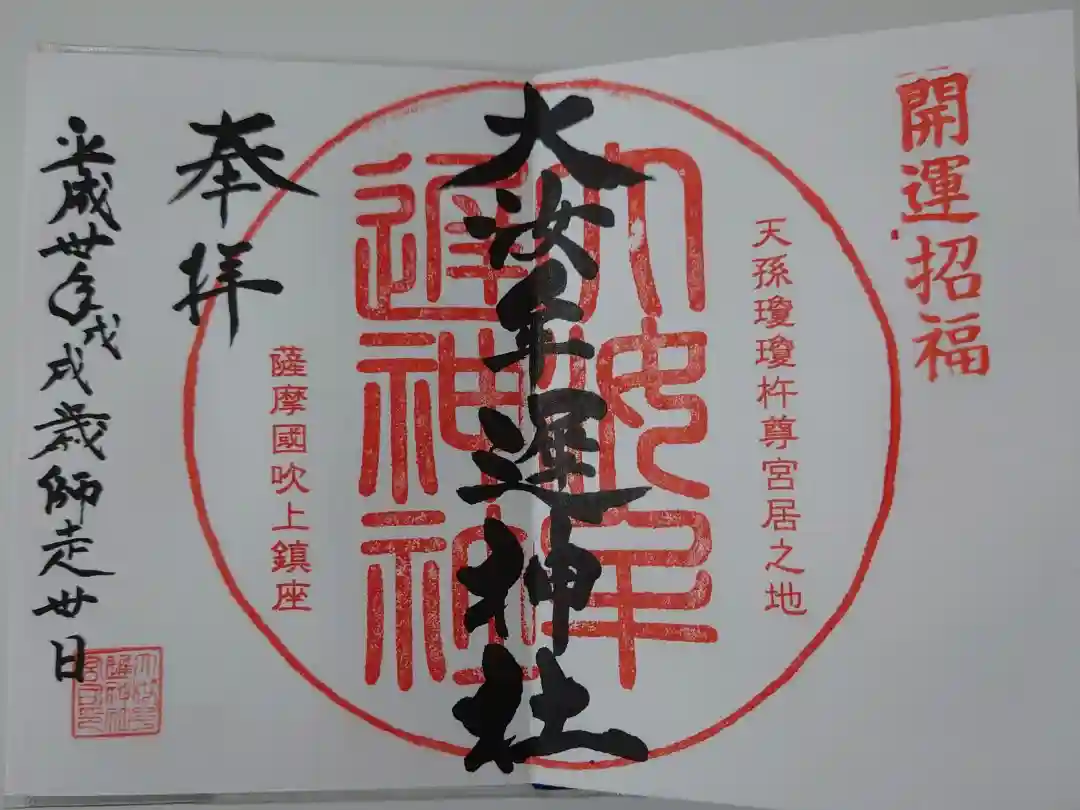 開運招福
天孫瓊瓊杵尊宮居之地
大汝牟遲神社
大汝牟遲神社
薩摩國吹上鎮座
奉拝
平成卅年戊戌歳師走廿日